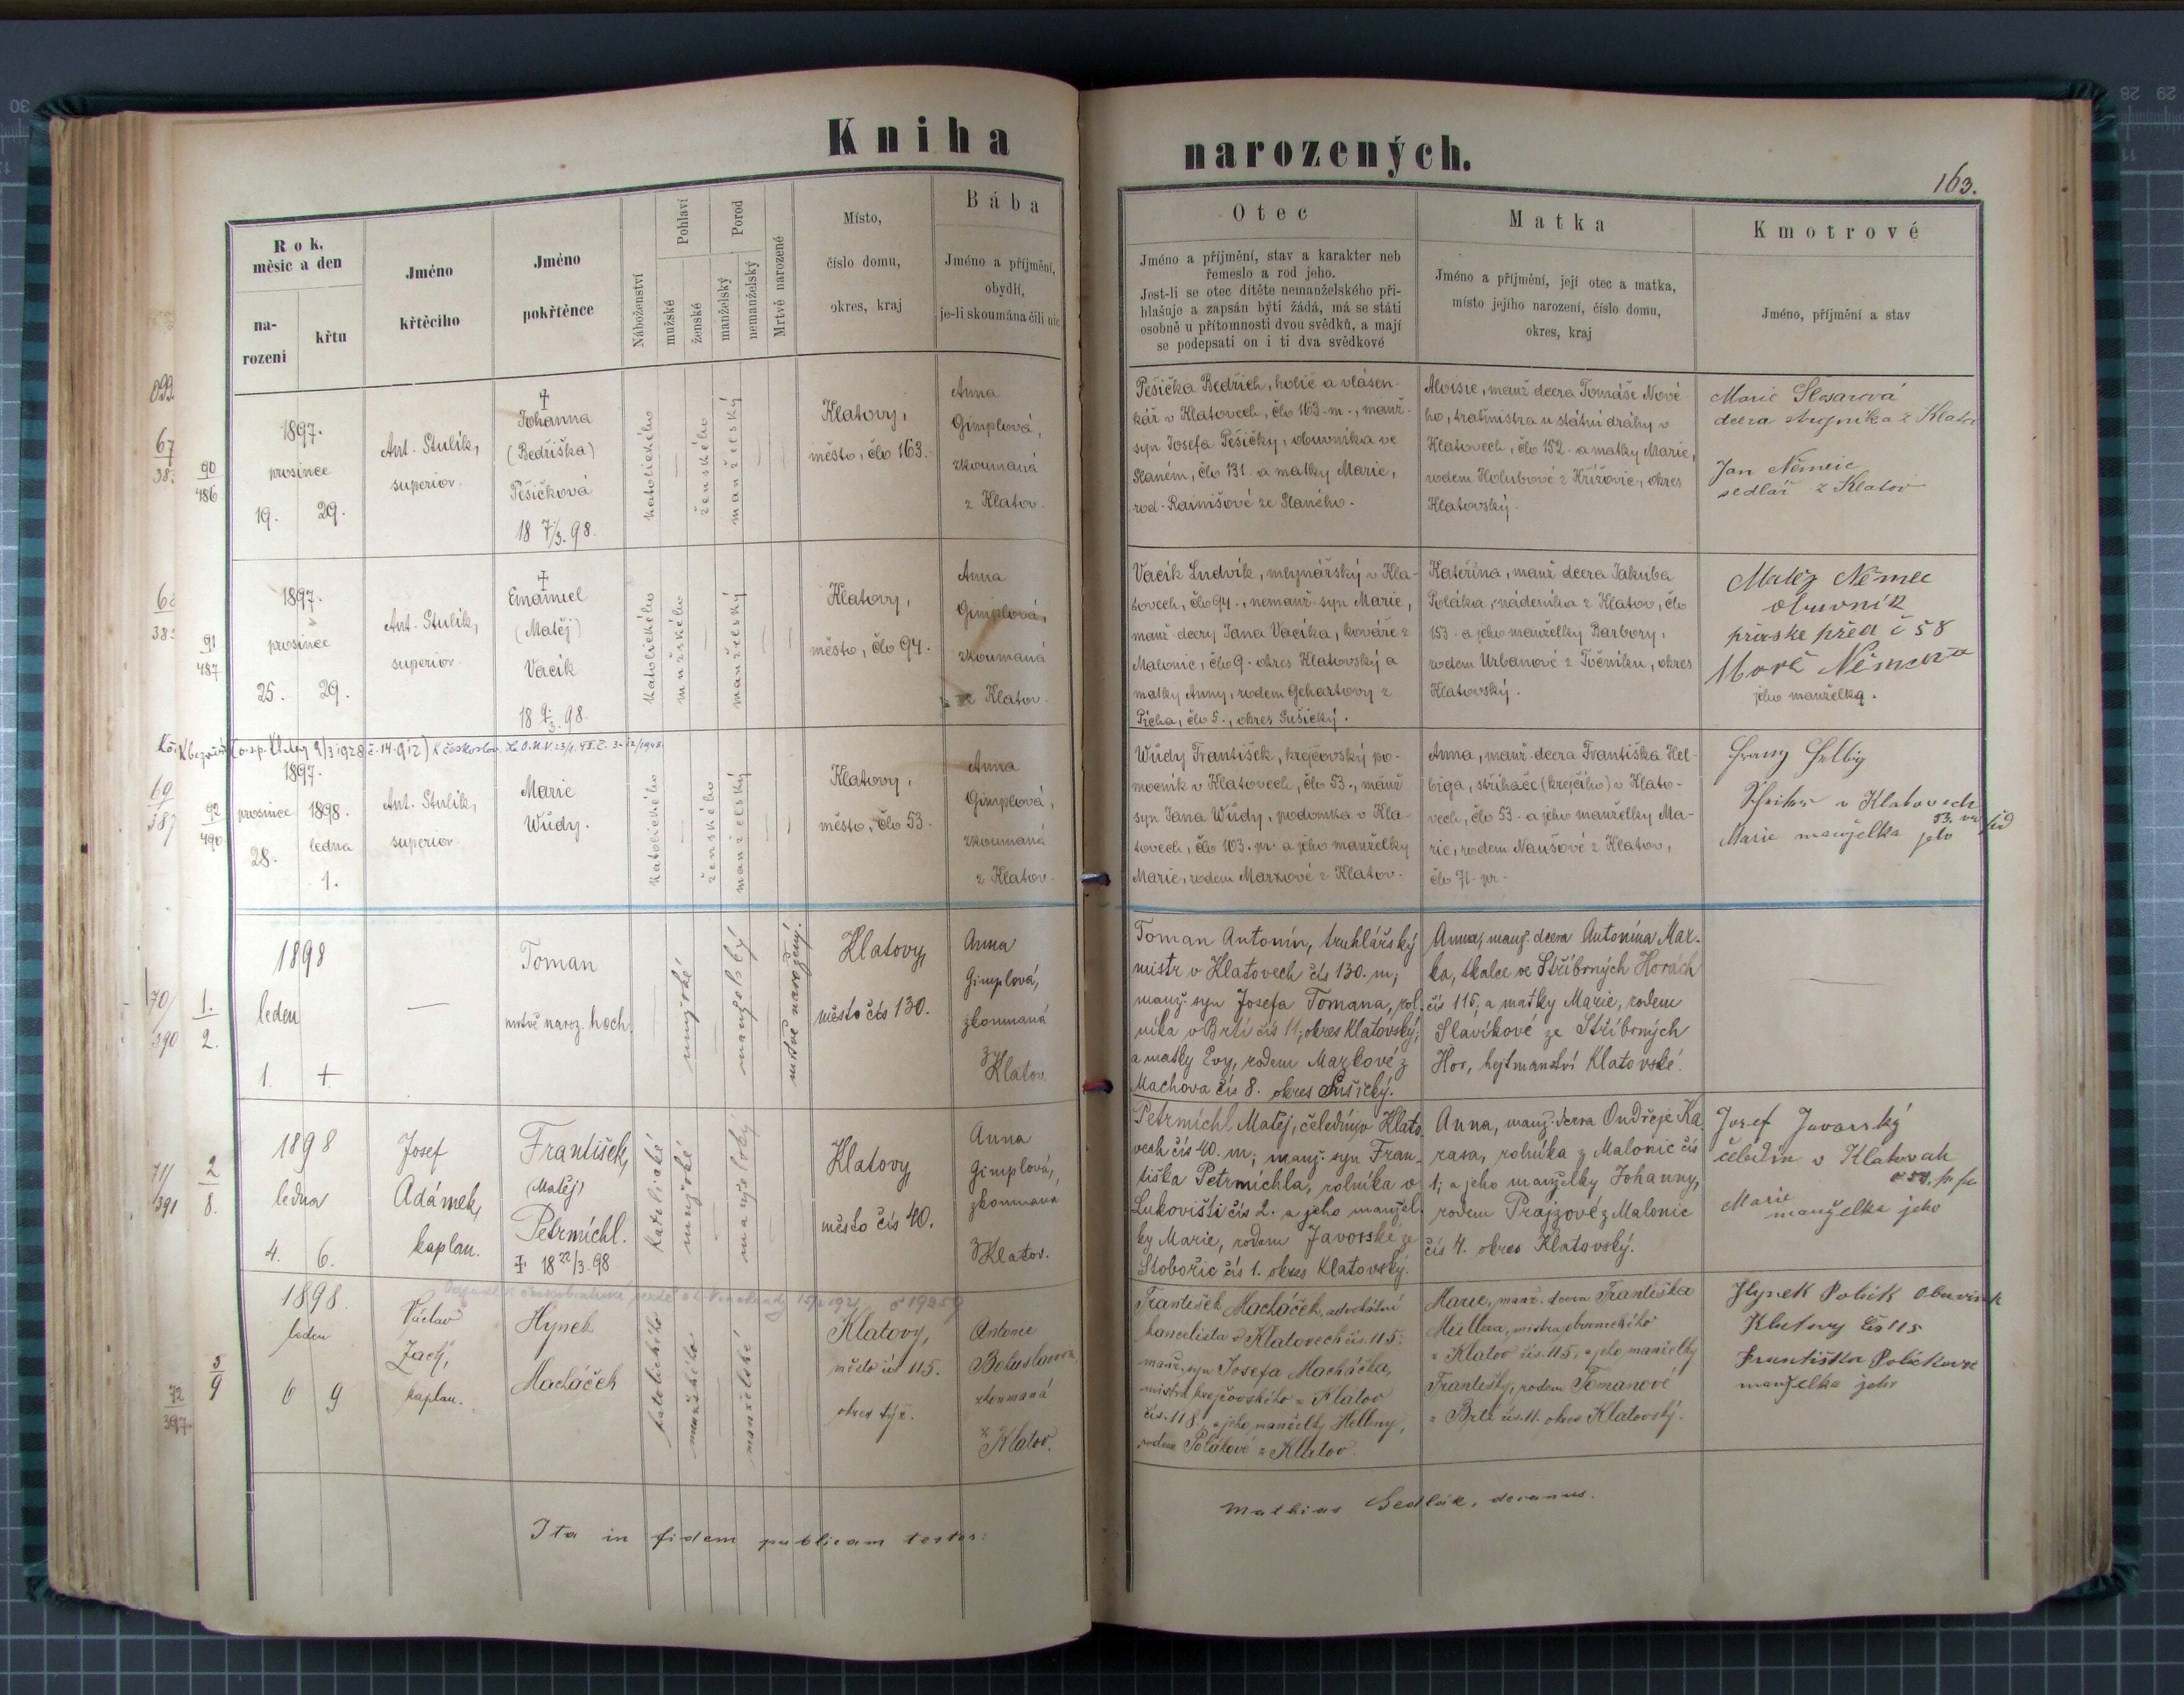 Kniha
narozených.
163.
Rok,
měsíc a den
na-
rození
křtu
Jméno
křtěcího
Jméno
pokřtěnce
Náboženství
Pohlaví
mužské
ženské
Porod
manželský
nemanželský
Mrtvě narozené
Místo,
číslo domu,
okres, kraj
Bába
Jméno a příjmění,
obydlí,
je-li skoumána čili nic
Otec
Jméno a příjmění, stav a karakter neb
řemeslo a rod jeho.
Jest-li se otec dítěte nemanželského při-
hlašuje a zapsán býti žádá, má se státi
osobně u přítomnosti dvou svědků, a mají
se podepsati on i ti dva svědkové
Matka
Jméno a příjmění, její otec a matka,
místo jejího narození, číslo domu,
okres, kraj
Kmotrové
Jméno, příjmění a stav
90
486
1897.
prosince
19. 29.
Ant. Stulík,
superior.
Johanna
(Bedřiška)
Pešičková
18 7/3. 98.
katolického
ženského
manželský
Klatovy,
město, čío 163.
Anna
Gimplová,
zkoumaná
z Klatov.
Pešička Bedřich, holič a vlásen-
kář v Klatovech, čío 163. m., manž.
syn Josefa Pešičky, obuvníka ve
Slaném, čío 131. a matky Marie,
rod. Rainišové ze Slaného.
Aloisie, manž. dcera Tomáše Nové-
ho, traťmistra u státní dráhy v
Klatovech, čío 152. a matky Marie,
rodem Holubové z Křížovic, okres
Klatovský.
Marie Slosarová
dcera z Klatov
Jan Němeic
sedlář z Klatov
91
487
1897.
prosince
25. 29.
Ant. Stulík,
superior.
Emanuel
(Matěj)
Vacík
18 9/3. 98.
katolického
mužského
manželský
Klatovy,
město, čío 94.
Anna
Gimplová,
zkoumaná
z Klatov.
Vacík Ludvík, mlynářský v Kla-
tovech, čío 94., nemanž. syn Marie,
manž. dcery Jana Vacíka, kováře z
Malonic, čío 9. okres Klatovský a
matky Anny, rodem Gehartovy z
Pícha, čío 5., okres Sušický.
Kateřina, manž. dcera Jakuba
Poláka, nádeníka z Klatov, čío
153. a jeho manželky Barbory,
rodem Urbanové z Točníku, okres
Klatovský.
Matěj Němec
obuvník
před č 58
Němcova
jeho manželka.
69
387
92
490
1897.
prosince 1898.
28. ledna
1.
Ant. Stulík,
superior.
Marie
Wudy.
katolického
ženského
manželský
Klatovy,
město, čío 53.
Anna
Gimplová,
zkoumaná
z Klatov.
Wudy František, krejčovský po-
mocník v Klatovech, čío 53., manž.
syn Jana Wudy, podomka v Kla-
tovech, čío 103. pr. a jeho manželky
Marie, rodem Marxové z Klatov.
Anna, manž. dcera Františka Hel-
biga, střihače (krejčího) v Klato-
vech, čío 53. a jeho manželky Ma-
rie, rodem Naušové z Klatov,
čío 71. pr.
Franz Helbig
v Klatovech
53.
Marie manželka jeho
170/
390
1.
2.
1898
leden
1. +
—
Toman
mrtvě naroz. hoch.
mužské
manželský
mrtvě narozený.
Klatovy,
město čís 130.
Anna
Gimplová,
zkoumaná
z Klatov.
Toman Antonín, truhlářský
mistr v Klatovech čís 130. m;
manž. syn Josefa Tomana, rol-
níka v Brtí čís 11; okres Klatovský;
a matky Evy, rodem Markové z
Machova čís 8. okres Sušický.
Anna, manž. dcera Antonína Mar-
ka, tkalce ve Stříbrných Horách
čís 115; a matky Marie, rodem
Slavíkové ze Stříbrných
Hor, hejtmanství Klatovské.
71/
391
2
8.
1898
ledna
4. 6.
Josef
Adámek,
kaplan.
František,
(Matěj)
Petrmíchl.
18 22/3. 98
katolické
mužské
manželský
Klatovy,
město čís 40.
Anna
Gimplová,
zkoumaná
z Klatov.
Petrmíchl Matěj, čeledín v Klato-
vech čís 40. m; manž. syn Fran-
tiška Petrmíchla, rolníka v
Lukovišti čís 2. a jeho manžel-
ky Marie, rodem Javorské ze
Stobořic čís 1. okres Klatovský.
Anna, manž. dcera Ondřeje Ka-
rasa, rolníka z Malonic čís
1; a jeho manželky Johanny,
rodem Prajzové z Malonic
čís 4. okres Klatovský.
Josef Javorský
čeledín v Klatovah
Marie
manželka jeho
72
397
3
9
1898.
leden
6 9
Václav
Zach,
kaplan.
Hynek
Macháček
katolického
mužského
manželské
Klatovy,
město čís 115.
okres týž.
Antonie
Bohuslavová
zkoumaná
z Klatov.
František Macháček, advokátní
kancelista v Klatovech čís. 115.
manž. syn Josefa Macháčka,
mistra krejčovského v Klatov
čís. 118, a jeho manželky Heleny,
rodem Polákové z Klatov.
Marie, manž. dcera Františka
Müllera, mistra obuvnického
z Klatov čís. 115, a jeho manželky
Františky, rodem Tomanové
z Brtí čís. 11. okres Klatovský.
Hynek Polák obuvník
Klatovy čís 115
Františka
manželka jeho
Ita in fidem publicam testor:
Mathias Sedlák, decanus.